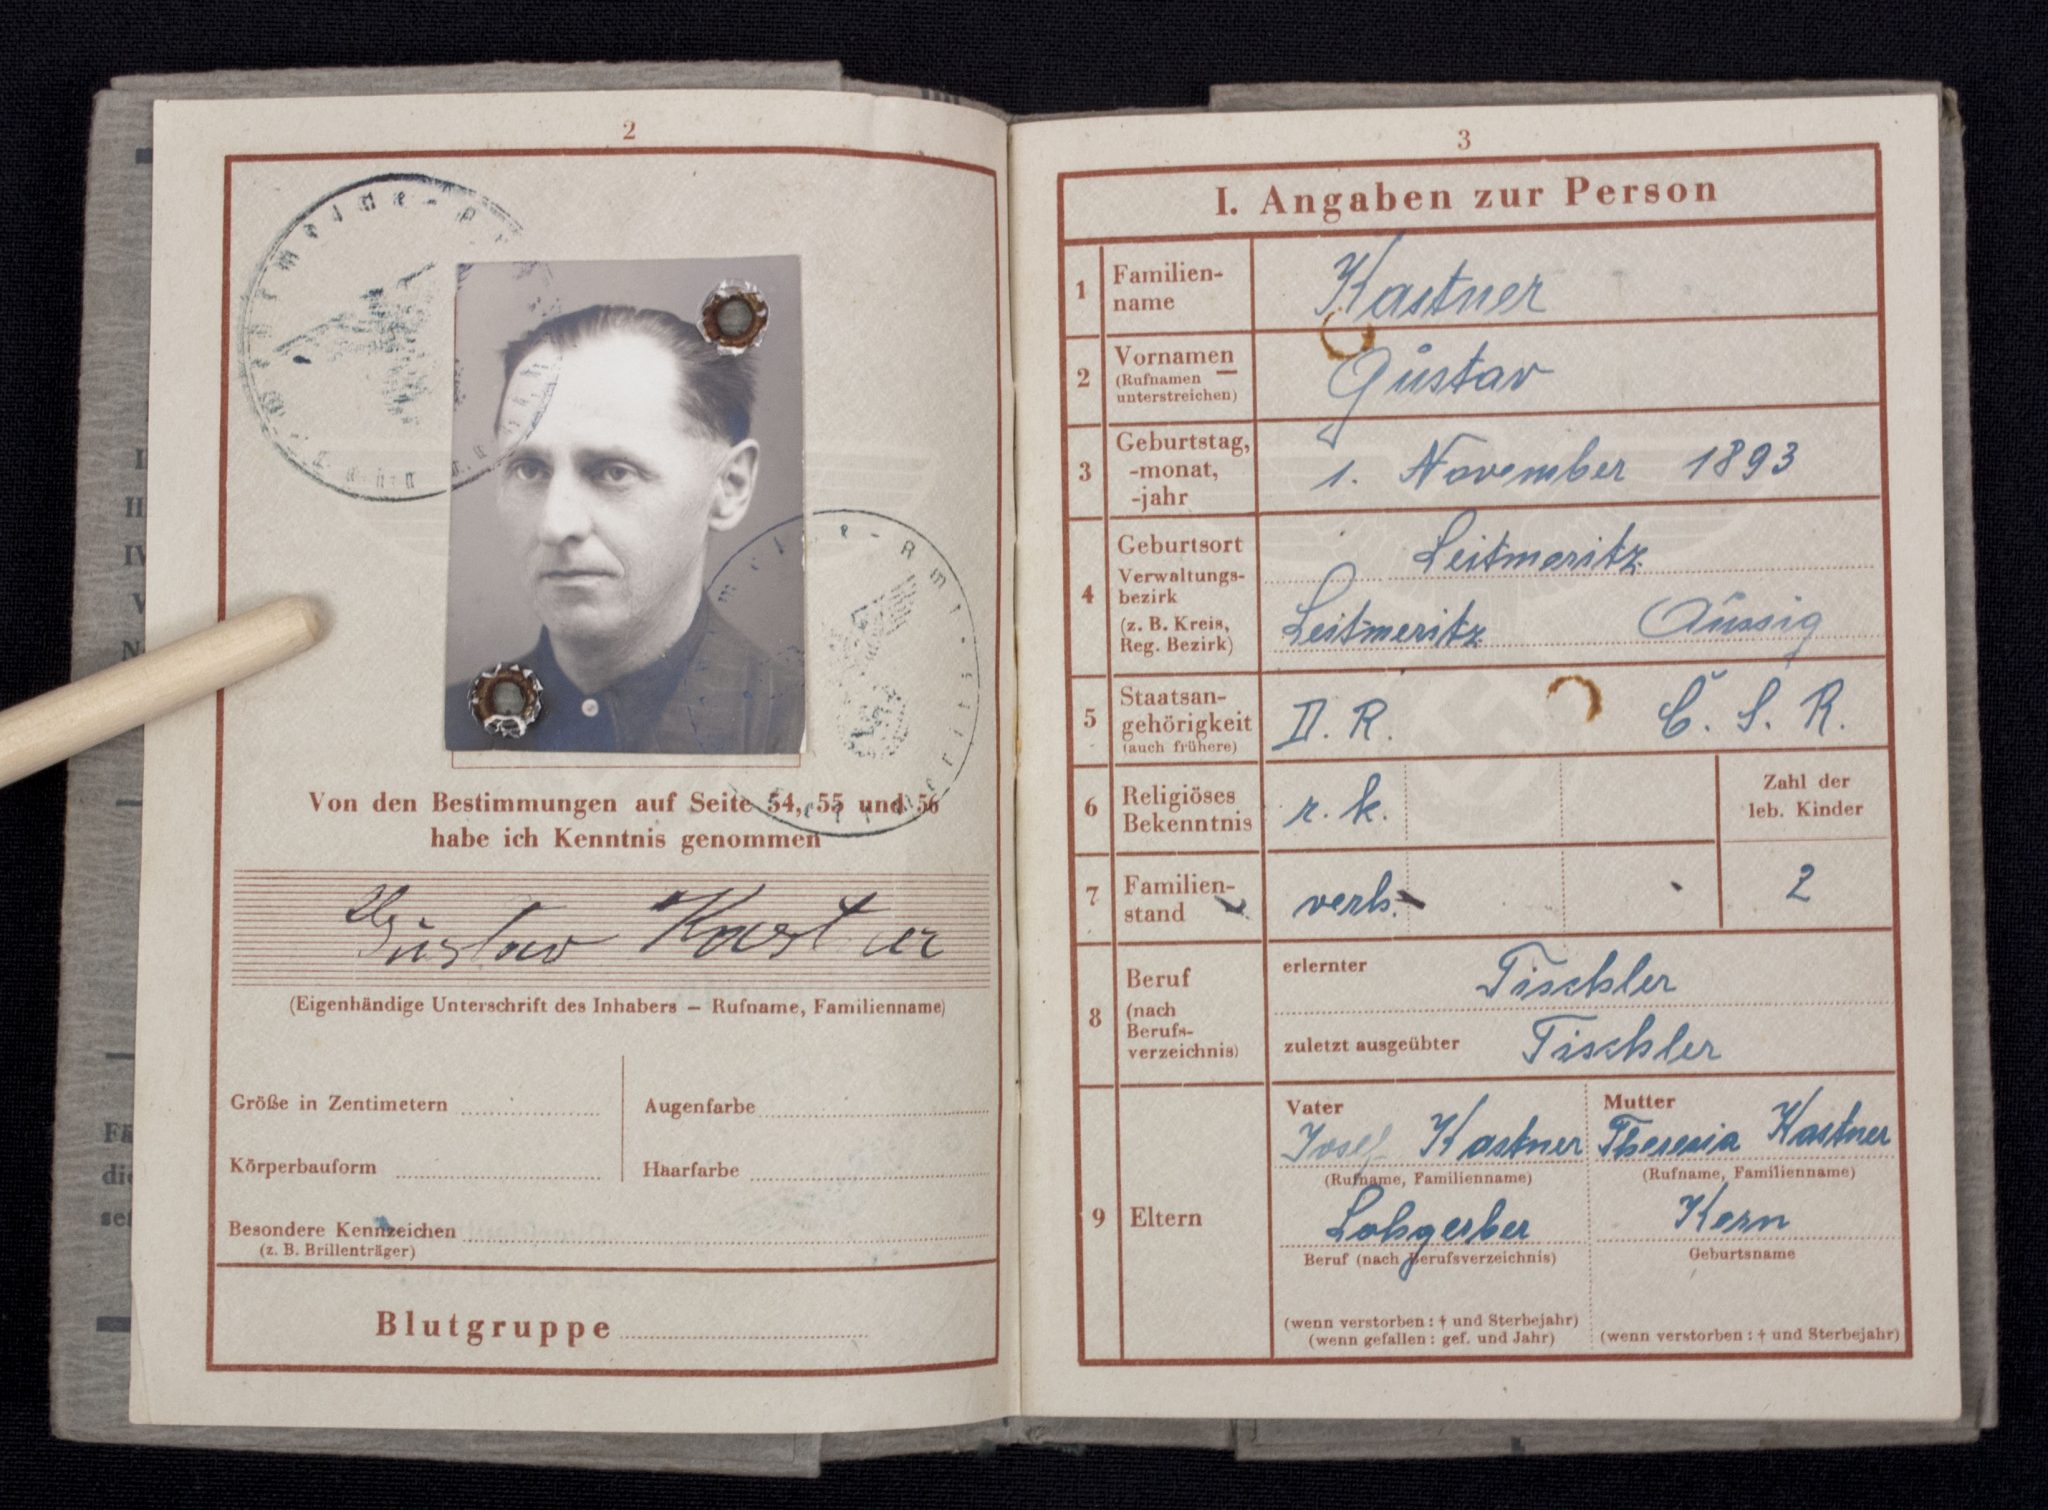 2
Von den Bestimmungen auf Seite 54, 55 und 56
habe ich Kenntnis genommen
Gustav Kastner
(Eigenhändige Unterschrift des Inhabers — Rufname, Familienname)
Größe in Zentimetern
Augenfarbe
Körperbauform
Haarfarbe
Besondere Kennzeichen
(z. B. Brillenträger)
Blutgruppe
3
I. Angaben zur Person
1 Familien-
name
Kastner
2 Vornamen
(Rufnamen
unterstreichen)
Gustav
3 Geburtstag,
-monat,
-jahr
1. November 1893
4 Geburtsort
Verwaltungs-
bezirk
(z. B. Kreis,
Reg. Bezirk)
Leitmeritz
Leitmeritz Aussig
5 Staatsan-
gehörigkeit
(auch frühere)
D. R. Č. S. R.
6 Religiöses
Bekenntnis
r. k.
Zahl der
leb. Kinder
2
7 Familien-
stand
verh.
8 Beruf
(nach
Berufs-
verzeichnis)
erlernter Tischler
zuletzt ausgeübter Tischler
9 Eltern
Vater
Josef Kastner
(Rufname, Familienname)
Lohgerber
Beruf (nach Berufsverzeichnis)
(wenn verstorben: † und Sterbejahr)
(wenn gefallen: gef. und Jahr)
Mutter
Theresia Kastner
(Rufname, Familienname)
Kern
Geburtsname
(wenn verstorben: † und Sterbejahr)